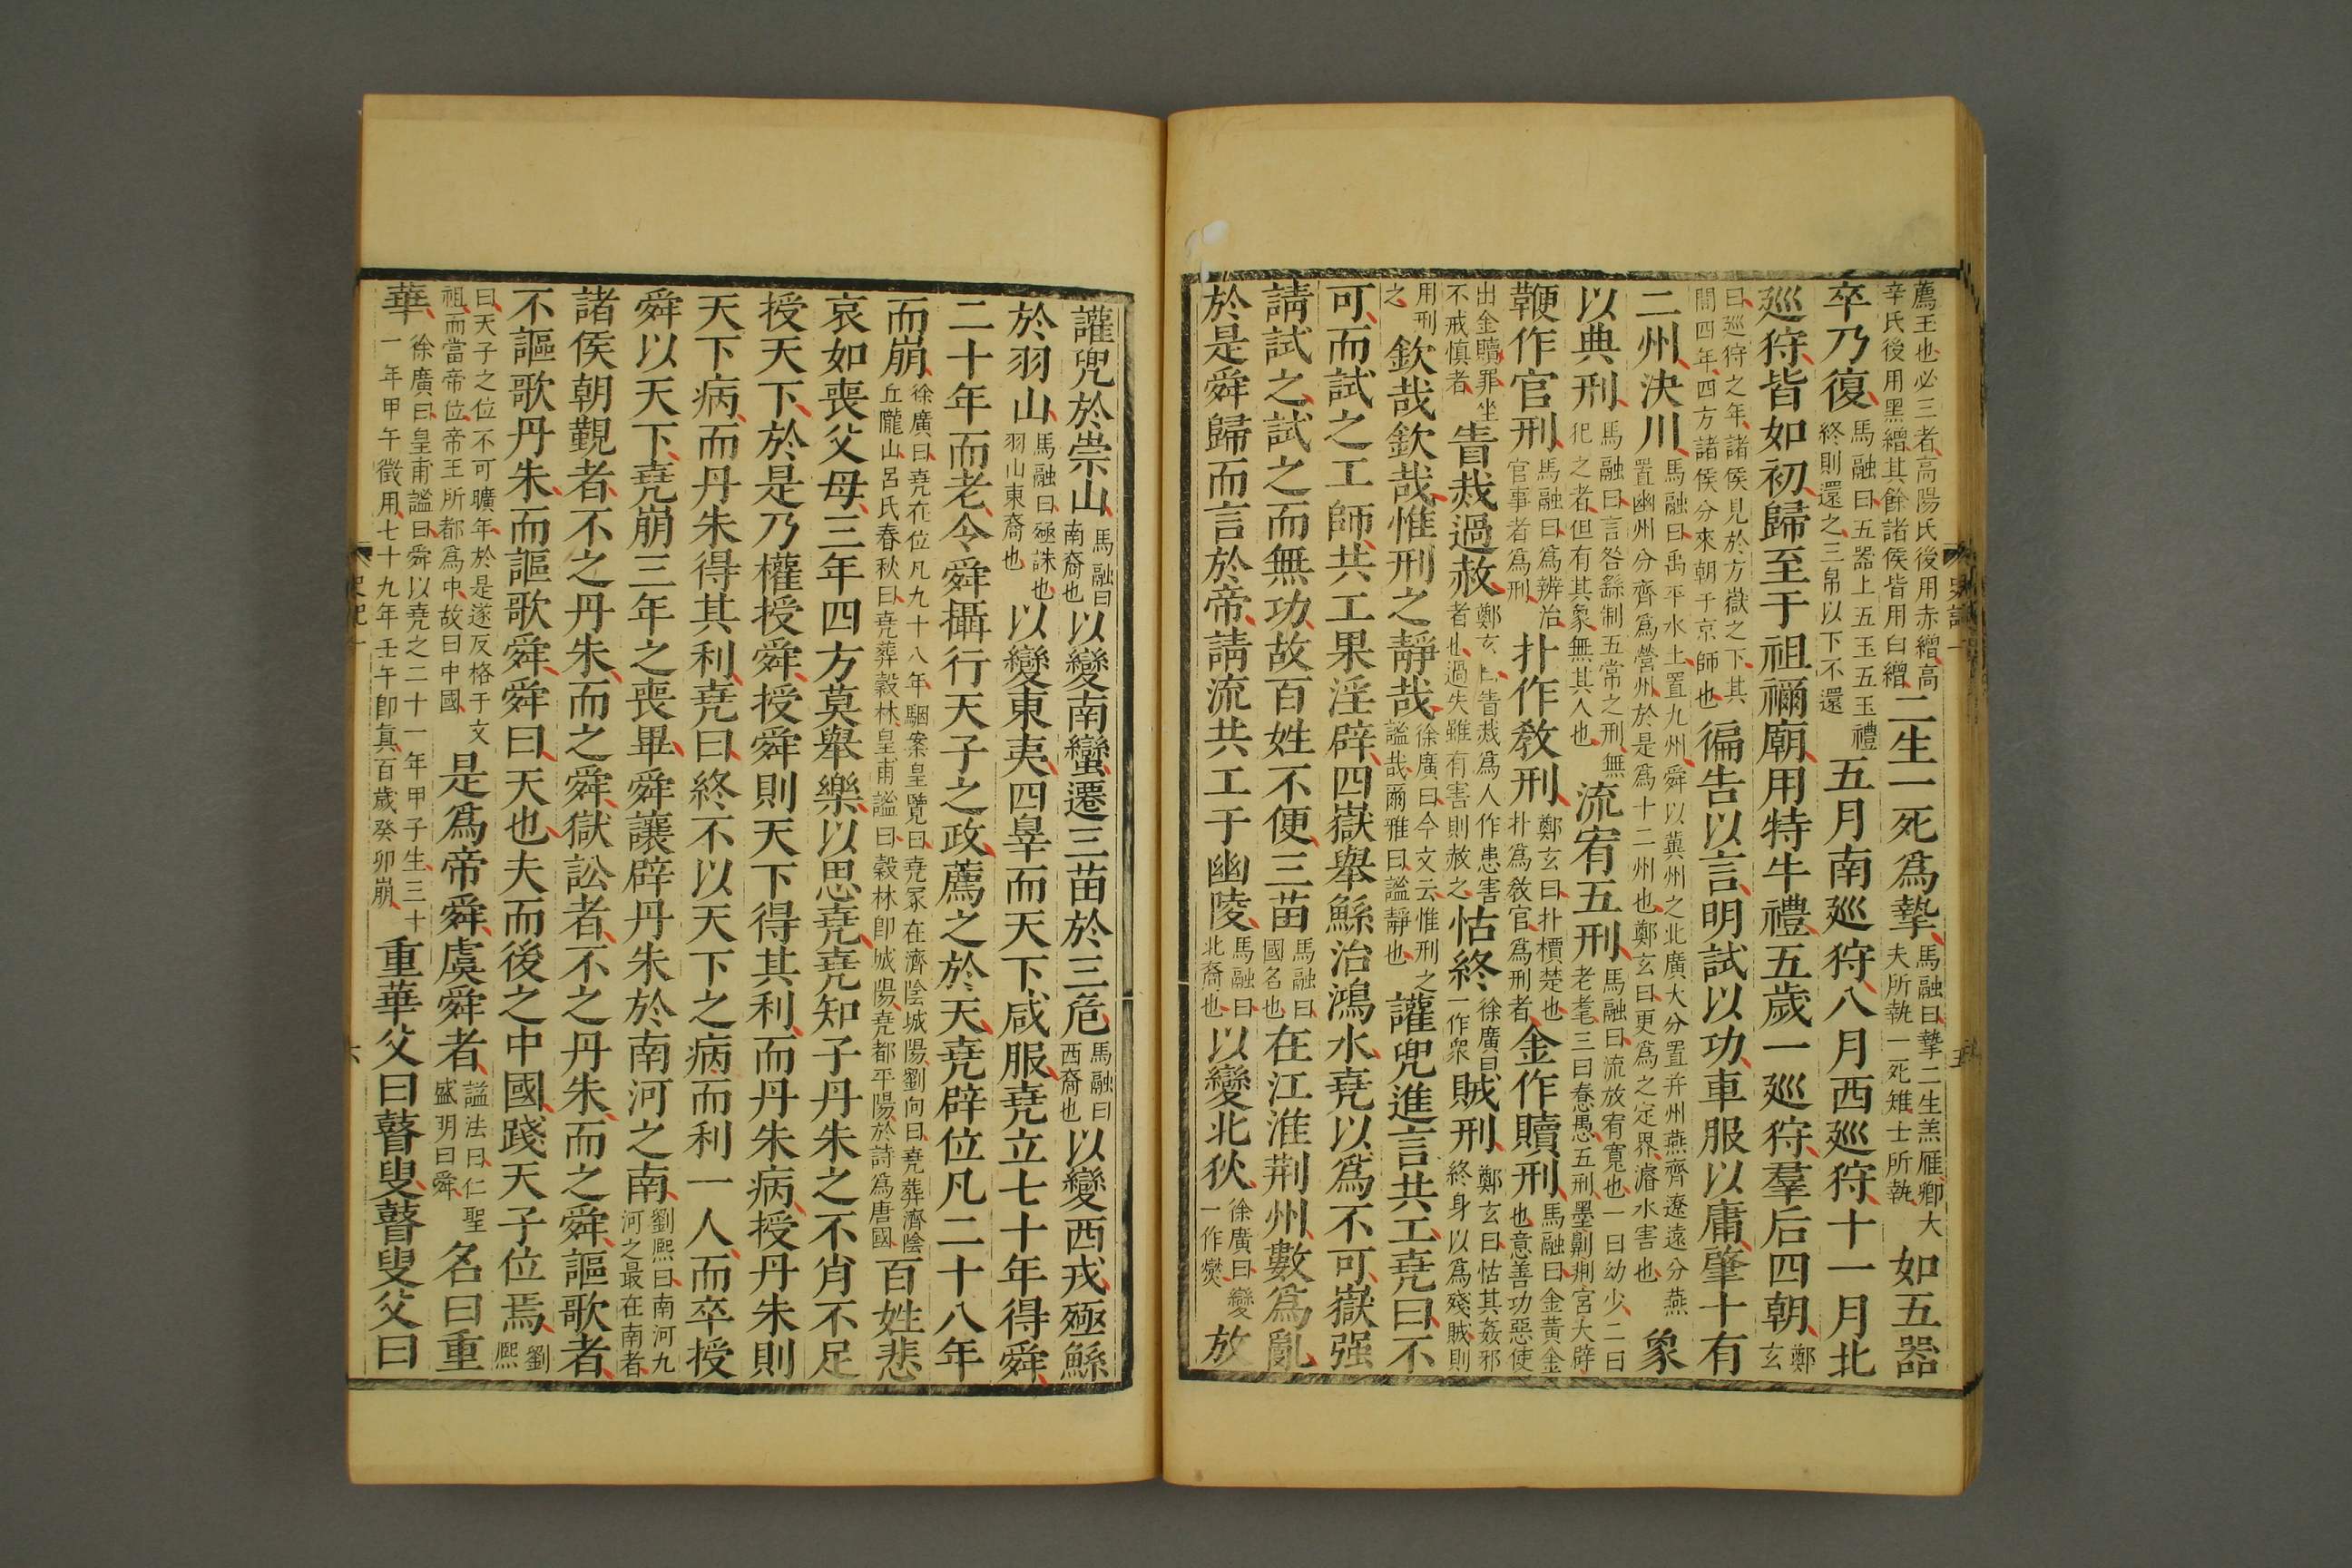 薦玉也必三者高陽氏後用赤繒高
辛氏後用黑繒其餘諸侯皆用白繒
二生一死爲摯
馬融曰摯二生羔雁卿大
夫所執一死雉士所執
如五器
卒乃復
馬融曰五器上五玉五玉禮
終則還之三帛以下不還
五月南巡狩八月西巡狩十一月北
巡狩皆如初歸至于祖禰廟用特牛禮五歲一巡狩羣后四朝
鄭
玄
曰巡狩之年諸侯見於方嶽之下其
間四年四方諸侯分來朝于京師也
徧告以言明試以功車服以庸肇十有
二州決川
馬融曰禹平水土置九州舜以冀州之北廣大分置并州燕齊遼遠分燕
置幽州分齊爲營州於是爲十二州也鄭玄曰更爲之定界濬水害也
象
以典刑
馬融曰言咎繇制五常之刑無
犯之者但有其象無其人也
流宥五刑
馬融曰流放宥寬也一曰幼少二曰
老耄三曰惷愚五刑墨劓剕宮大辟
鞭作官刑
馬融曰爲辨治
官事者爲刑
扑作教刑
鄭玄曰扑檟楚也
扑爲教官爲刑者
金作贖刑
馬融曰金黃金
也意善功惡使
出金贖罪坐
不戒慎者
眚烖過赦
鄭玄曰眚烖爲人作患害
者也過失雖有害則赦之
怙終
徐廣曰
一作衆
賊刑
鄭玄曰怙其姦邪
終身以爲殘賊則
用刑
之
欽哉欽哉惟刑之靜哉
徐廣曰今文云惟刑之
謐哉爾雅曰謐靜也
讙兜進言共工堯曰不
可而試之工師共工果淫辟四嶽舉鯀治鴻水堯以爲不可嶽强
請試之試之而無功故百姓不便三苗
馬融曰
國名也
在江淮荆州數爲亂
於是舜歸而言於帝請流共工于幽陵
馬融曰
北裔也
以變北狄
徐廣曰變
一作燮
放
讙兜於崇山
馬融曰
南裔也
以變南蠻遷三苗於三危
馬融曰
西裔也
以變西戎殛鯀
於羽山
馬融曰殛誅也
羽山東裔也
以變東夷四辠而天下咸服堯立七十年得舜
二十年而老令舜攝行天子之政薦之於天堯辟位凡二十八年
而崩
徐廣曰堯在位凡九十八年駰案皇覽曰堯冢在濟陰城陽劉向曰堯葬濟陰
丘隴山呂氏春秋曰堯葬穀林皇甫謐曰穀林即城陽堯都平陽於詩爲唐國
百姓悲
哀如喪父母三年四方莫舉樂以思堯堯知子丹朱之不肖不足
授天下於是乃權授舜授舜則天下得其利而丹朱病授丹朱則
天下病而丹朱得其利堯曰終不以天下之病而利一人而卒授
舜以天下堯崩三年之喪畢舜讓辟丹朱於南河之南
劉熙曰南河九
河之最在南者
諸侯朝覲者不之丹朱而之舜獄訟者不之丹朱而之舜謳歌者
不謳歌丹朱而謳歌舜舜曰天也夫而後之中國踐天子位焉
劉
熙
曰天子之位不可曠年於是遂反格于文
祖而當帝位帝王所都爲中故曰中國
是爲帝舜虞舜者
謚法曰仁聖
盛明曰舜
名曰重
華
徐廣曰皇甫謐曰舜以堯之二十一年甲子生三十
一年甲午徵用七十九年壬午即真百歲癸卯崩
重華父曰瞽叟瞽叟父曰
史記一
六